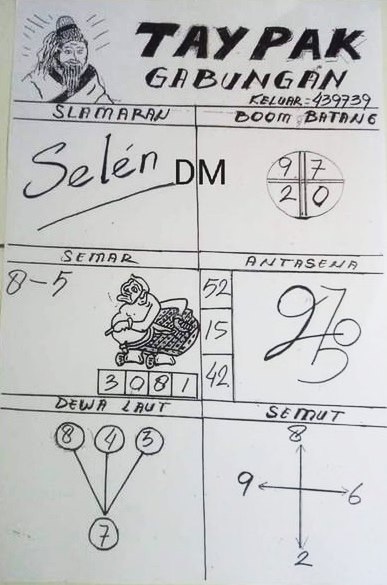 TAYPAK
GABUNGAN
KELUAR = 439739
SLAMARAN
BOOM BATANG
Selén DM
9 7
2 0
SEMAR
ANTASENA
8-5
52
15
42
3 0 8 1
DEWA LAUT
SEMUT
8 4 3
7
8
9 6
2